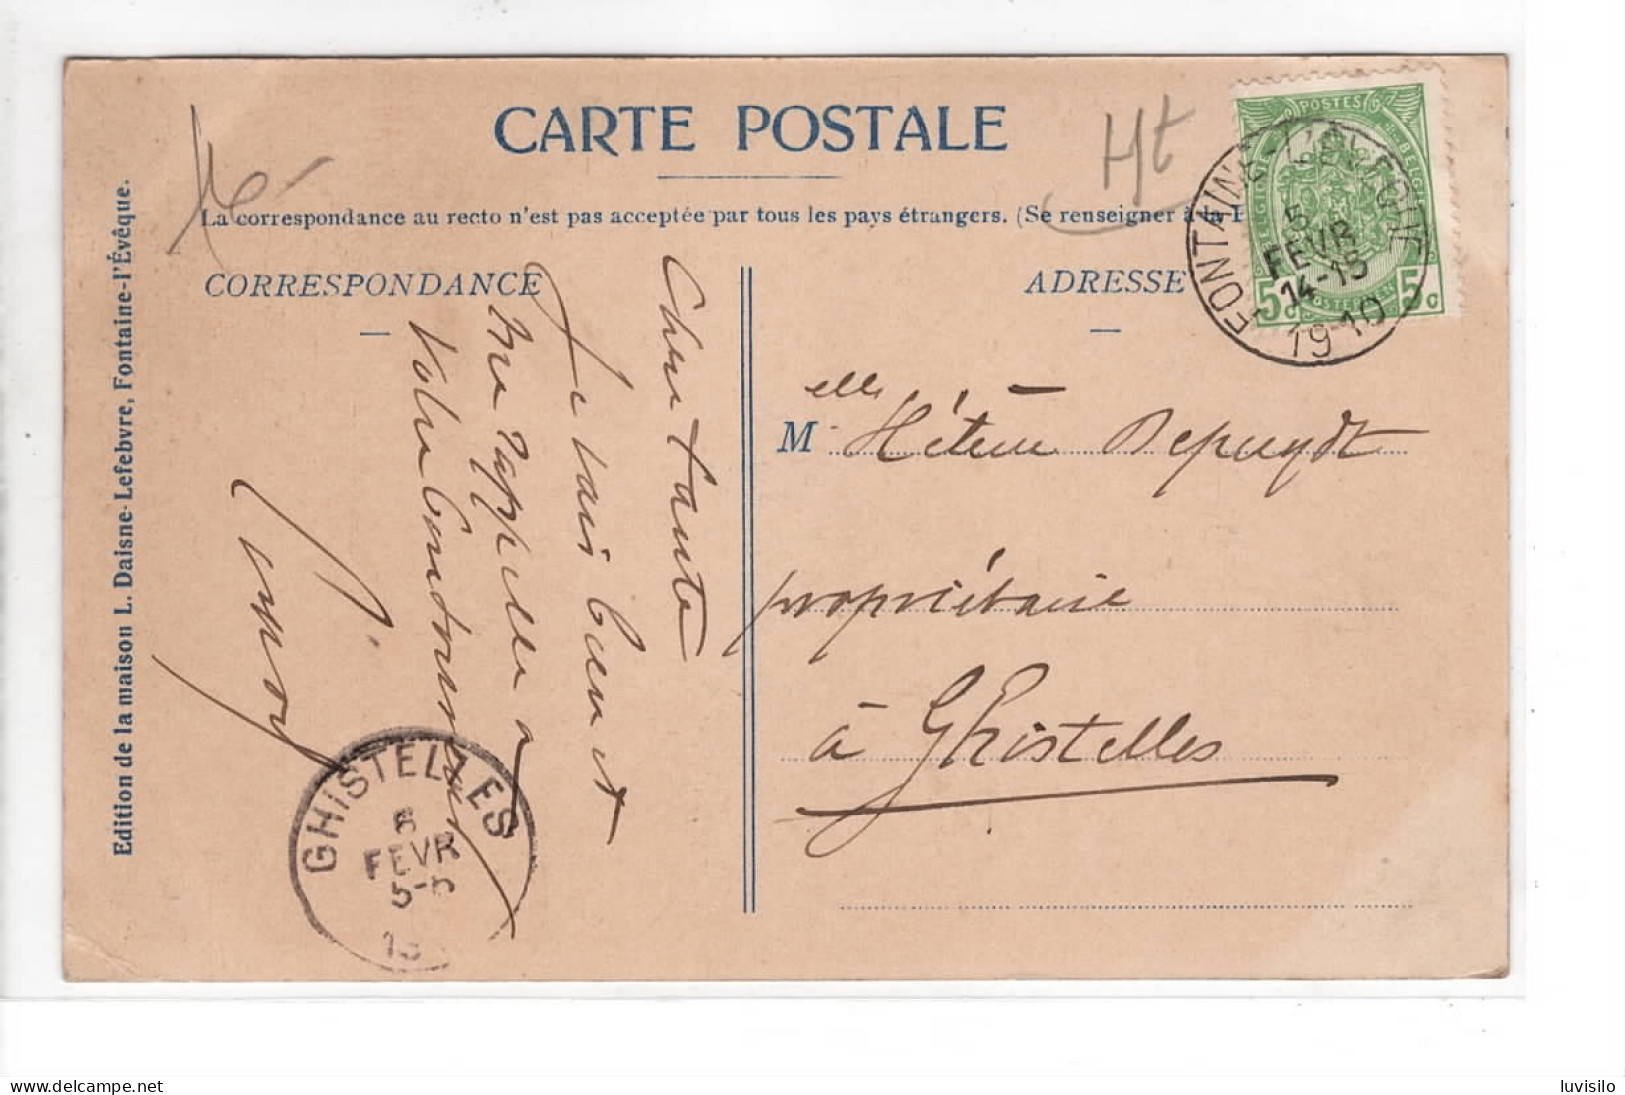 CARTE POSTALE
Ht
La correspondance au recto n'est pas acceptée par tous les pays étrangers. (Se renseigner à la
CORRESPONDANCE
ADRESSE
Edition de la maison L. Daisne-Lefebvre, Fontaine-l'Évêque.
POSTES
BELGIQUE
5c 5c
FONTAINE-L'EVEQUE
5
FEVR
14-15
1910
Chère tante
Je vais bien et
me rappelle à
votre bon souvenir
M elle Depuydt
propriétaire
à Ghistelles
GHISTELLES
6
FEVR
5-6
delcampe.net
luvisilo